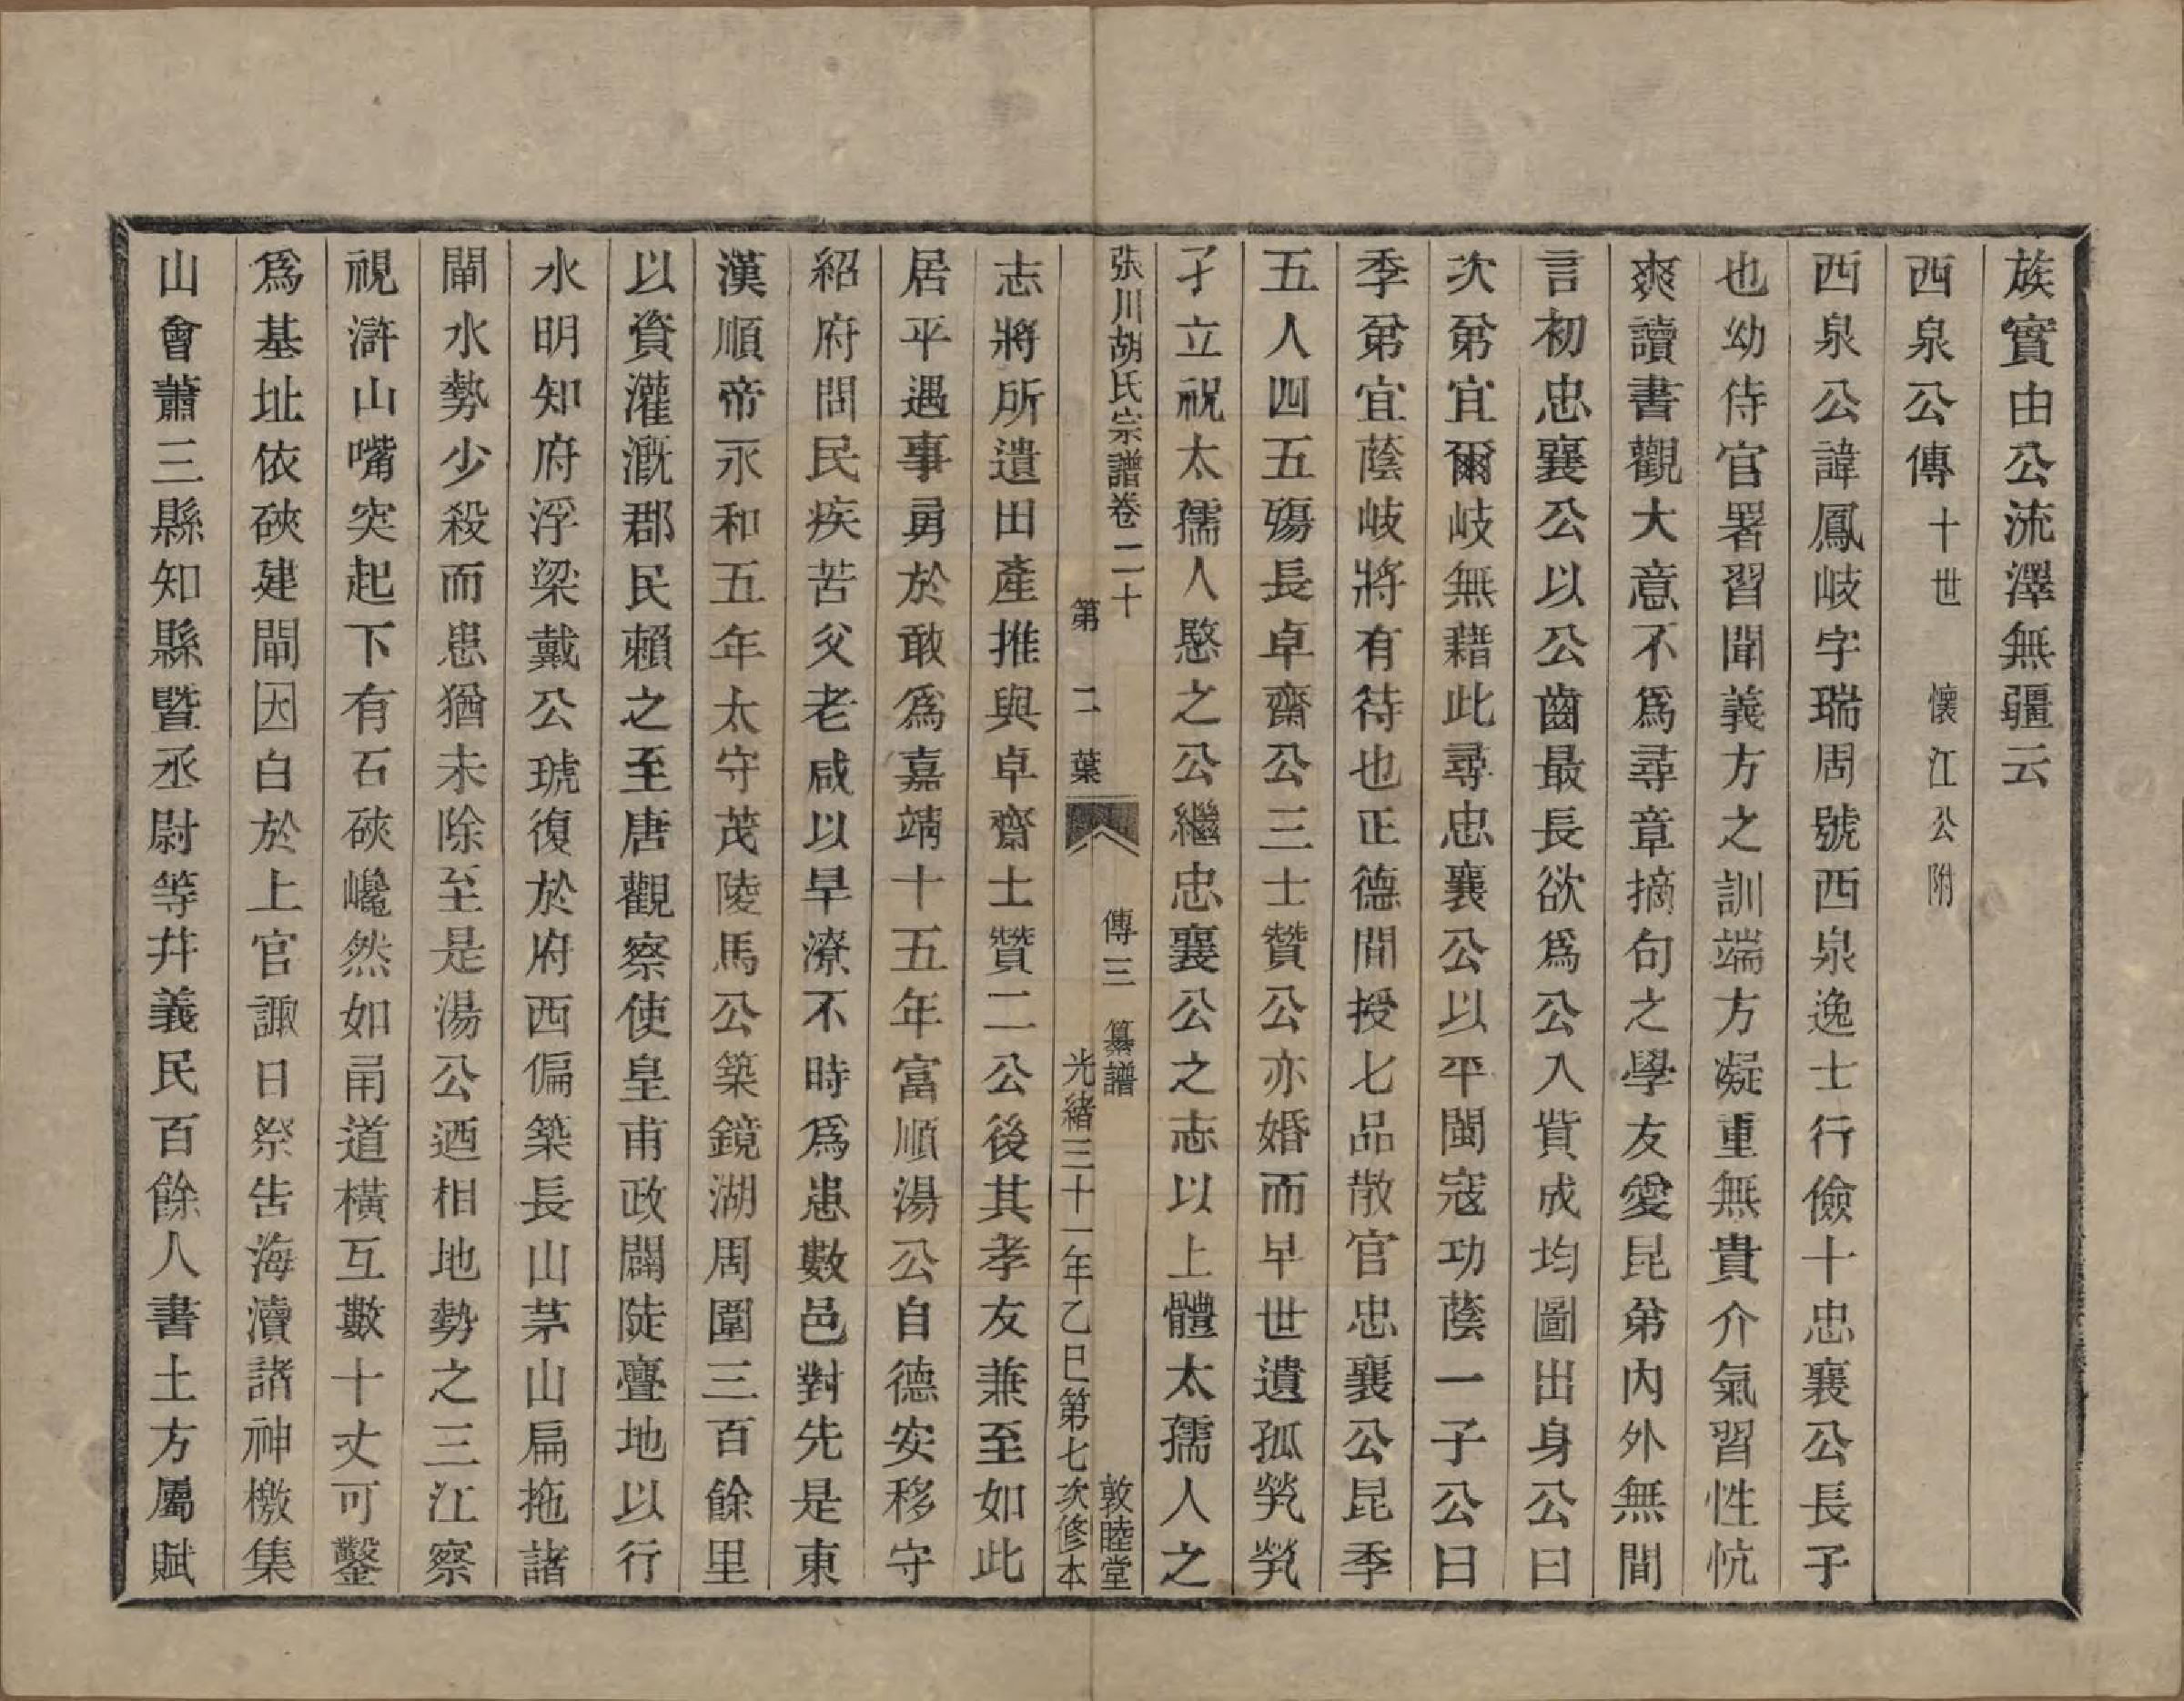 族實由公流澤無疆云
西泉公傳十世 懷江公附
西泉公諱鳳岐字瑞周號西泉逸士行儉十忠襄公長子
也幼侍官署習聞義方之訓端方凝重無貴介氣習性忼
爽讀書觀大意不爲尋章摘句之學友愛昆弟內外無間
言初忠襄公以公齒最長欲爲公入貲成均圖出身公曰
次弟宜爾岐無藉此尋忠襄公以平閩寇功蔭一子公曰
季弟宜蔭岐將有待也正德間授七品散官忠襄公昆季
五人四五殤長卓齋公三士贊公亦婚而早世遺孤煢煢
孑立祝太孺人愍之公繼忠襄公之志以上體太孺人之
張川胡氏宗譜卷二十 傳三 纂譜 敦睦堂
第二葉 光緒三十一年乙巳第七次修本
志將所遺田產推與卓齋士贊二公後其孝友兼至如此
居平遇事勇於敢爲嘉靖十五年富順湯公自德安移守
紹府問民疾苦父老咸以旱潦不時爲患數邑對先是東
漢順帝永和五年太守茂陵馬公築鏡湖周圍三百餘里
以資灌溉郡民賴之至唐觀察使皇甫政闢陡亹地以行
水明知府浮梁戴公琥復於府西偏築長山茅山扁拖諸
閘水勢少殺而患猶未除至是湯公迺相地勢之三江察
視滸山嘴突起下有石硤巉然如甬道橫互數十丈可鑿
爲基址依硤建閘因白於上官諏日祭告海瀆諸神檄集
山會蕭三縣知縣暨丞尉等幷義民百餘人書土方屬賦